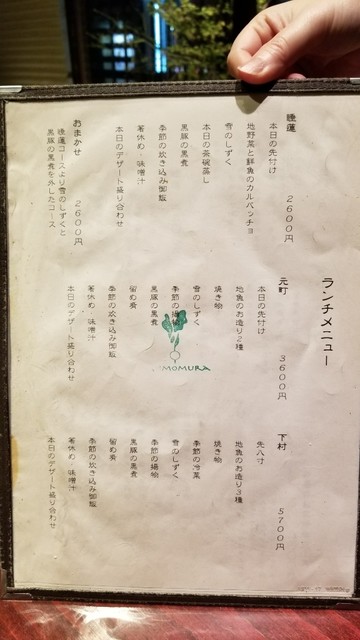 ランチメニュー
睡蓮 2600円
本日の先付け
地野菜と鮮魚のカルパッチョ
雪のしずく
本日の茶碗蒸し
黒豚の黒煮
季節の炊き込み御飯
箸休め 味噌汁
本日のデザート盛り合わせ
おまかせ 2600円
睡蓮コースより雪のしずくと
黒豚の黒煮を外したコース
元町 3600円
本日の先付け
地魚のお造り2種
焼き物
雪のしずく
季節の揚物
黒豚の黒煮
留め肴
季節の炊き込み御飯
箸休め・味噌汁
本日のデザート盛り合わせ
下村 5700円
先八寸
地魚のお造り3種
焼き物
季節の冷菜
雪のしずく
季節の揚物
黒豚の黒煮
留め肴
季節の炊き込み御飯
箸休め・味噌汁
本日のデザート盛り合わせ
MOMURA